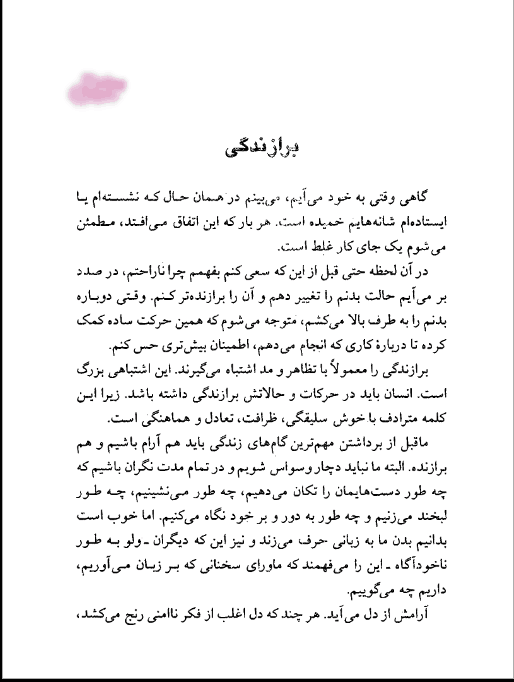 برازندگی
گاهی وقتی به خود می‌آیم، می‌بینم در همان حال که نشسته‌ام یا
ایستاده‌ام شانه‌هایم خمیده است. هر بار که این اتفاق می‌افتد، مطمئن
می‌شوم یک جای کار غلط است.
در آن لحظه حتی قبل از این که سعی کنم بفهمم چرا ناراحتم، در صدد
بر می‌آیم حالت بدنم را تغییر دهم و آن را برازنده‌تر کنم. وقتی دوباره
بدنم را به طرف بالا می‌کشم، متوجه می‌شوم که همین حرکت ساده کمک
کرده تا دربارهٔ کاری که انجام می‌دهم، اطمینان بیش‌تری حس کنم.
برازندگی را معمولاً با تظاهر و مد اشتباه می‌گیرند. این اشتباهی بزرگ
است. انسان باید در حرکات و حالاتش برازندگی داشته باشد. زیرا این
کلمه مترادف با خوش سلیقگی، ظرافت، تعادل و هماهنگی است.
ماقبل از برداشتن مهم‌ترین گام‌های زندگی باید هم آرام باشیم و هم
برازنده. البته ما نباید دچار وسواس شویم و در تمام مدت نگران باشیم که
چه طور دست‌هایمان را تکان می‌دهیم، چه طور می‌نشینیم، چه طور
لبخند می‌زنیم و چه طور به دور و بر خود نگاه می‌کنیم. اما خوب است
بدانیم بدن ما به زبانی حرف می‌زند و نیز این که دیگران ـ ولو به طور
ناخودآگاه ـ این را می‌فهمند که ماورای سخنانی که بر زبان می‌آوریم،
داریم چه می‌گوییم.
آرامش از دل می‌آید. هر چند که دل اغلب از فکر ناامنی رنج می‌کشد،